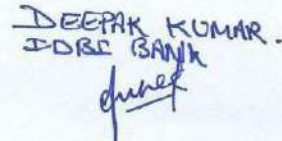 DEEPAK KUMAR.
IDBI BANK